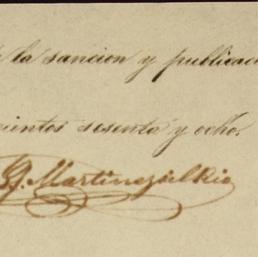 la sancion y publicaci
cientos sesenta y ocho.
J. Martinez del Rio